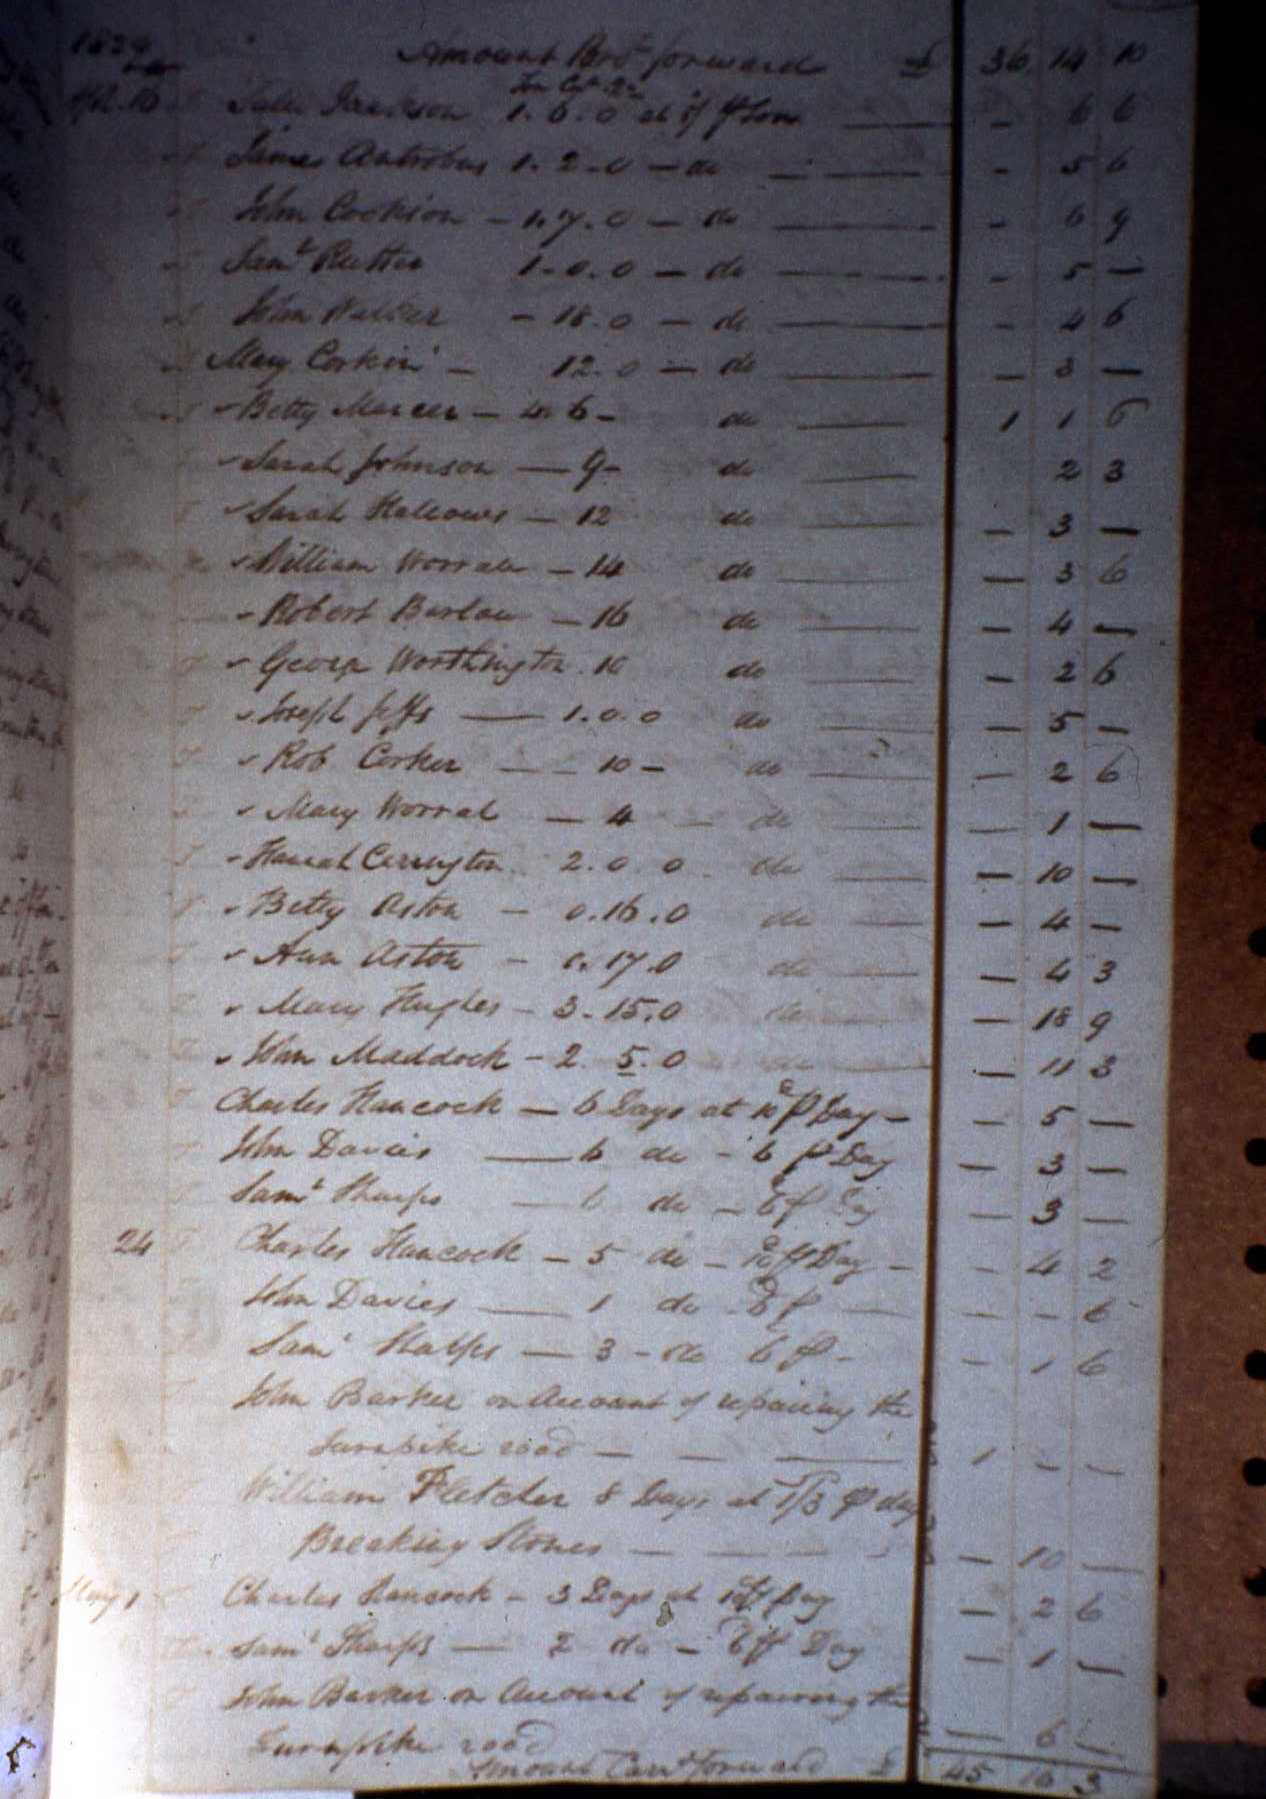 1829 Amount Bro.t forward £ 36 14 10
Ton Cwt Qrs
Apl. 18 Jackson 1. 6. 0 at 5/ p Ton — 6 6
James Antrobus 1. 2 - 0 — do — — 5 6
John Cookson — 1. 7. 0 — do — — 6 9
Sam.l Rutter 1 - 0. 0 — do — — 5 —
John Walker — 18. 0 — do — — 4 6
Mary Corkin — 12. 0 — do — — 3 —
Betty Mercer — 4. 6 — do — 1 1 6
Sarah Johnson — 9 — do — 2 3
Sarah Hallows — 12 do — — 3 —
William Worrall — 14 do — — 3 6
Robert Barlow — 16 do — — 4 —
George Worthington. 10 do — — 2 6
Joseph Jeffs — 1. 0. 0 do — — 5 —
Rob Corker — — 10 — do — — 2 6
Mary Worral — 4 — do — — 1 —
Hannah Cerrington. 2. 0. 0 do — — 10 —
Betty Aston — 0. 16. 0 do — 4 —
Ann Aston — 0. 17. 0 do — — 4 3
Mary Hughes — 3. 15. 0 do — — 18 9
John Maddock — 2. 5. 0 do — — 11 3
Charles Hancock — 6 Days at 10d p Day — — 5 —
John Davies — 6 do — 6 p Day — 3 —
Sam.l Sharps — 6 do — 6 p Day — 3 —
24 Charles Hancock — 5 do — 10d p Day — — 4 2
John Davies — 1 do 6d p — — — 6
Sam.l Sharps — 3 — do 6 p — — 1 6
John Barker on Account of repairing the
Turnpike road — — — 1 — —
William Fletcher 8 Days at 1/3 p day
Breaking Stones — — — — 10 —
May 1 Charles Hancock — 3 Days at 10d p Day — 2 6
Sam.l Sharps — 2 do — 6 p Day — 1 —
John Barker on Account of repairing the
Turnpike road — 6 —
Amount Carr.d forward £ 45 16 3